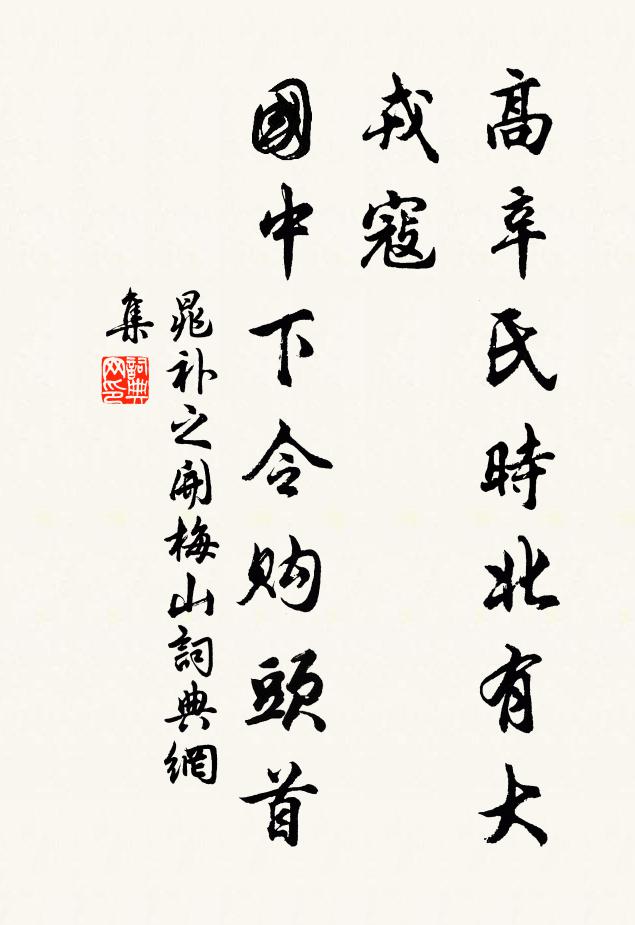 高辛氏時北有大
戎寇
國中下令购頭首
晁补之開梅山詞典網
集
詞典
网印